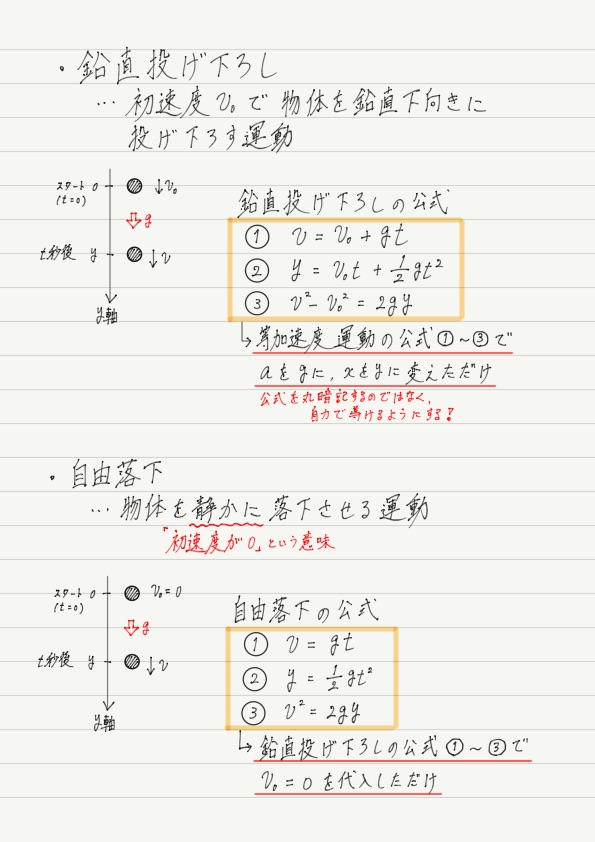 ・鉛直投げ下ろし
… 初速度 v₀ で 物体を鉛直下向きに
投げ下ろす運動
スタート 0 ↓v₀
(t=0)
g
t秒後 y ↓v
y軸
鉛直投げ下ろしの公式
① v = v₀ + gt
② y = v₀t + 1/2 gt²
③ v² - v₀² = 2gy
↳ 等加速度運動の公式①～③で
aをgに, xをyに変えただけ
公式を丸暗記するのではなく,
自力で導けるようにする!
・自由落下
… 物体を静かに落下させる運動
「初速度が0」という意味
スタート 0 v₀=0
(t=0)
g
t秒後 y ↓v
y軸
自由落下の公式
① v = gt
② y = 1/2 gt²
③ v² = 2gy
↳ 鉛直投げ下ろしの公式①～③で
v₀ = 0 を代入しただけ